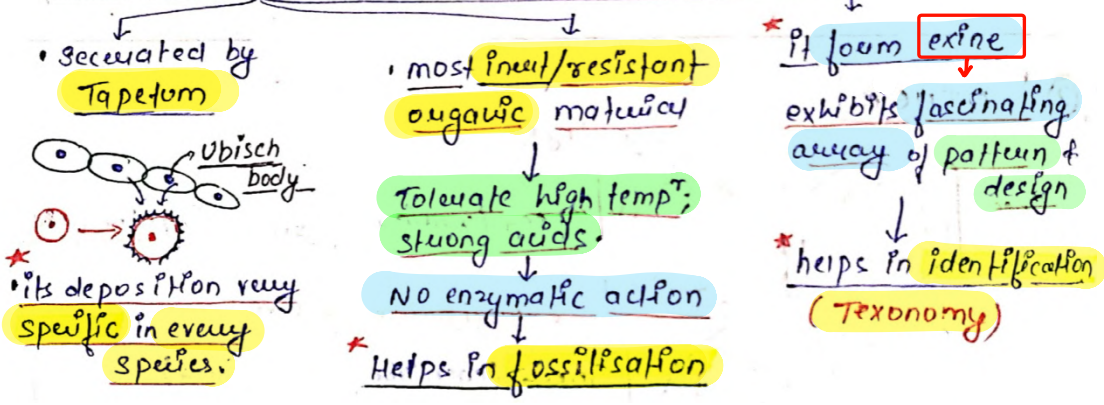 • secreated by
Tapetum
Ubisch
body
• its deposition very
specific in every
species.
• most inert/resistant
organic material
Tolerate high tempr;
strong acids.
No enzymatic action
Helps in fossilisation
it form exine
exhibits fascinating
array of pattern &
design
helps in identification
(Texonomy)